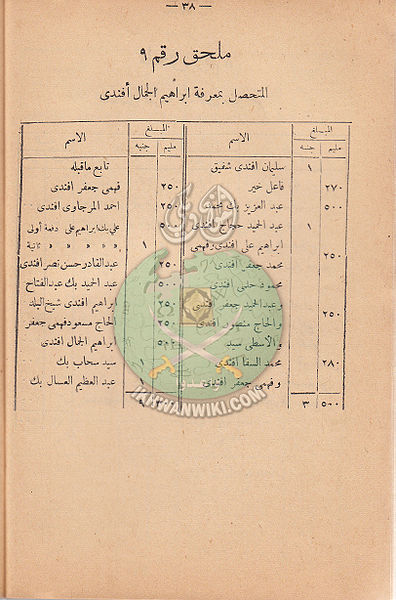 — ٣٨ —
ملحق رقم ٩
المتحصل بمعرفة ابراهيم الجمال أفندى
الاسم المبلغ
مليم جنيه
سليمان افندى شفيق ١
فاعل خير ٢٧٠
عبد العزيز بك محمد ٥٠٠
عبد الحميد حجاج افندى ١
ابراهيم على افندى وفهمى
محمد جعفر افندى ٢٥٠
محمود حلمى افندى
وعبد الحميد جعفر افندى ٢٥٠
والحاج منصور افندى
والأسطى سيد
محمد السقا افندى ٢٨٠
وفهمى جعفر افندى
٥٠٠ ٣
الاسم المبلغ
مليم جنيه
تابع ماقبله
فهمى جعفر افندى ٢٥٠
احمد المرجاوى افندى ٢٥٠
على بك ابراهيم على دفعة أولى ٥٠٠
» » » » ثانية ١
عبد القادر حسن نصر افندى ٢٥٠
عبد الحميد بك عبد الفتاح ٢٥٠
ابراهيم افندى شيخ البلد ٢٥٠
الحاج مسعود فهمى جعفر ٢٥٠
ابراهيم الجمال افندى
سيد سحاب بك ١
عبد العظيم العسال بك ١
IKHWANWIKI.COM